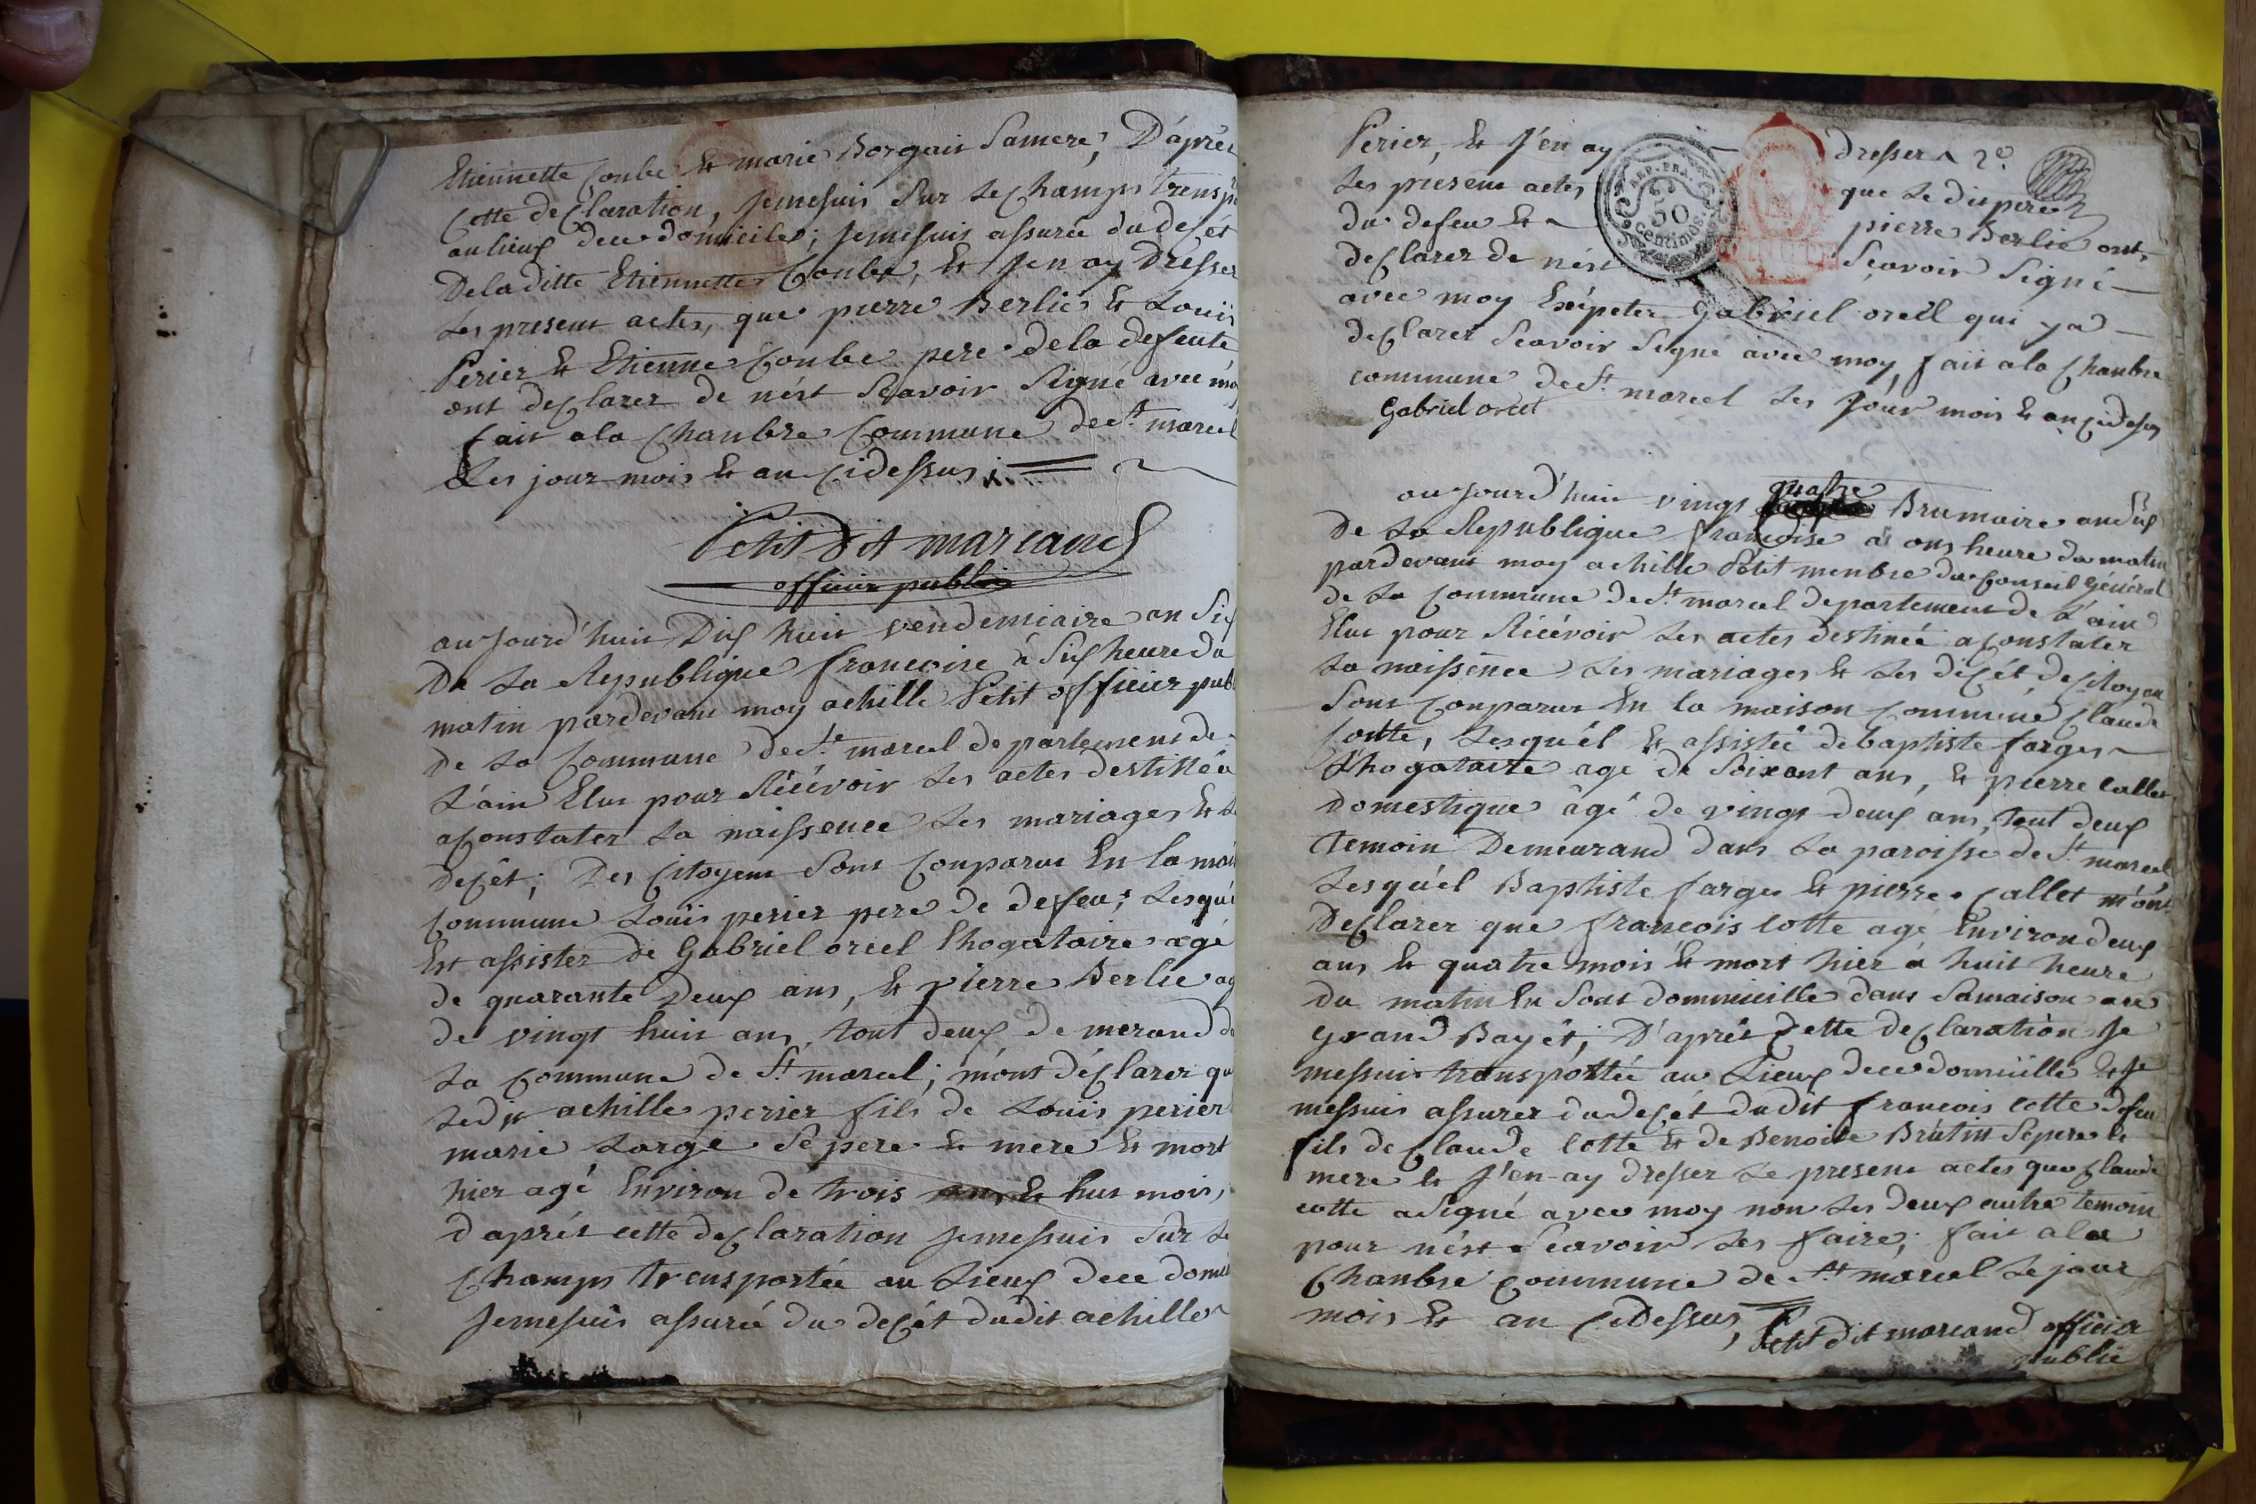 Etiennette Coube & marie Borgair Samere, D'aprés
Cette deClaration, Jemesuis Sur Le Champs transp
au lieux de ce domicile; Jemesuis assurée du decét
De la ditte Etiennette Coube, & J'en ay Dresser
Les present actes, que pierre Berlié & Louis
Perier & Etienne Coube pere de la defeute
ont deClarer de nést Seavoir Signé avec moy
fait a la Chanbre Commune de St. marcel
Les jour mois & an Cidessus
Petit dit marcand
officier public
aujourd'huit Dix huit vendemiaire an Six
De La Republique françoise à Six heure du
matin pardevant moy achille Petit officier pub
de La Commune de St. marcel departement de
L'ain Elue pour Récévoir Les actes destinée
aConstater La naissence Les mariages & Le
decêt; Des Citoyens Sont Comparue En la mai
Commune Louis perier pere de defeu; Lesqué
Est assister de Gabriel orcel Chogataire agé
de quarante Deux ans, & pierre Berlie ag
de vingt huit ans, tout deux demerand d
La Commune de St. marcel; mónt déClarer qu
Ledit achille perier fils de Louis perier
marie Large Sé pere & mere & mort
hier agé Environ de trois ans & hut mois,
d'aprés cette deClaration Jemesuis Sur Le
Champs trensportée au Lieux de ce domi
Jemesuis assuré du decét dudit achille
Perier, & J'en ay dresser
Les present actes que Le dit pere
du defeu & pierre Berlie ont
deClarer de nést Seavoir Signé
avec moy Exépeter Gabriel orcel qui ya
declarer Seavoir Signé avec moy, fait a la Chanbre
commune de St. marcel Les Jour mois & an Cidesus
Gabriel orcel
aujourd'huit vingt quatre Brumaire an Six
De La Republique françoise à ons heure du matin
pardevant moy achille Petit menbre du Conseil Général
de La Commune de St. marcel departement de L'ain
Elue pour Récévoir Les actes destinée aConstater
La naissence Les mariages & Les décét de Citoyen
Sont Conparue En la maison Commune Claude
Cotte, Lesquél & assistée de baptiste farges
Chogataire agé de Soixent ans, & pierre Callet
domestique âgé de vingt deux ans, tout deux
temoin Demeurand dans La paroisse de St. marcel
Lesquél Baptiste farges & pierre Callet mónt
DeClarer que françois Cotte agé Environ deux
ans & quatre mois & mort hier à huit heure
du matin En Sont dommicille dans Samaison au
grand Bayét; D'aprés Cette deClaration Je
mesuis transportée au Lieux de ce domicille & Je
messuis assurer du decét dudit françois cotte defeu
fils de Claude Cotte & de Benoite Brutin Sépere &
mere & J'en ay dresser Le present actes que Claude
cotte a Signé avec moy non Les deux autre temoin
pour nést Seavoir Les faire; fait a la
Chanbre Commune de St. marcel Le jour
mois & an CiDessus,
Petit dit marcand officier
public
REP. FRA.
50
Centimes